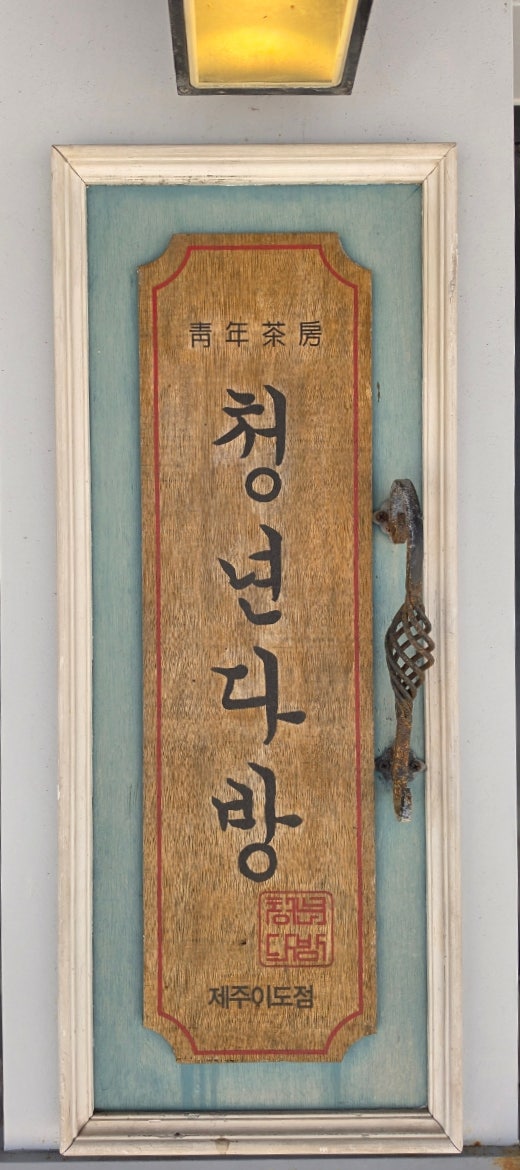 靑年茶房
청년다방
청년
다방
제주이도점